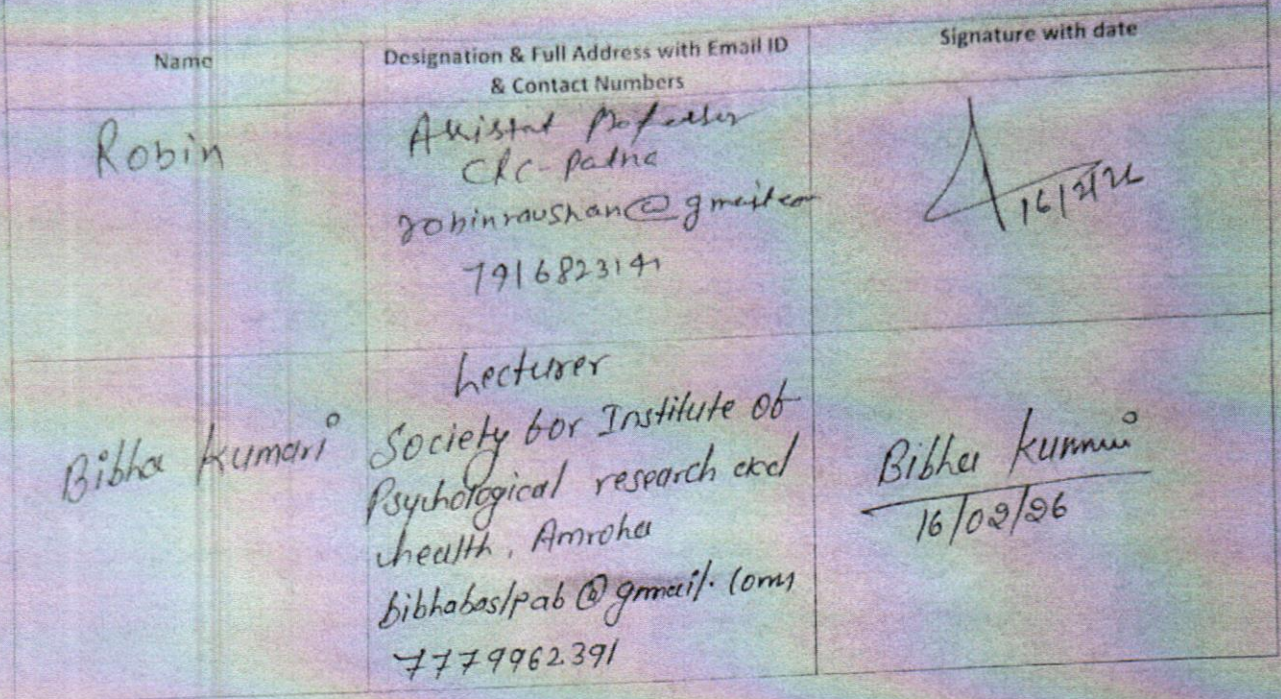 Name
Designation & Full Address with Email ID
& Contact Numbers
Signature with date
Robin
Assistant Professor
CRC-Patna
robinraushan@gmail.com
7916823141
16/2/26
Bibha Kumari
Lecturer
Society for Institute of
Psychological research and
health, Amroha
@gmail.com
7779962391
Bibha Kumari
16/02/26